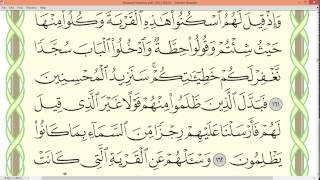 وَإِذْ قِيلَ لَهُمُ ٱسْكُنُوا۟ هَـٰذِهِ ٱلْقَرْيَةَ وَكُلُوا۟ مِنْهَا
حَيْثُ شِئْتُمْ وَقُولُوا۟ حِطَّةٌ وَٱدْخُلُوا۟ ٱلْبَابَ سُجَّدًا
نَّغْفِرْ لَكُمْ خَطِيٓـَٔـٰتِكُمْ ۚ سَنَزِيدُ ٱلْمُحْسِنِينَ
١٦١ فَبَدَّلَ ٱلَّذِينَ ظَلَمُوا۟ مِنْهُمْ قَوْلًا غَيْرَ ٱلَّذِى قِيلَ
لَهُمْ فَأَرْسَلْنَا عَلَيْهِمْ رِجْزًا مِّنَ ٱلسَّمَآءِ بِمَا كَانُوا۟
يَظْلِمُونَ ١٦٢ وَسْـَٔلْهُمْ عَنِ ٱلْقَرْيَةِ ٱلَّتِى كَانَتْ